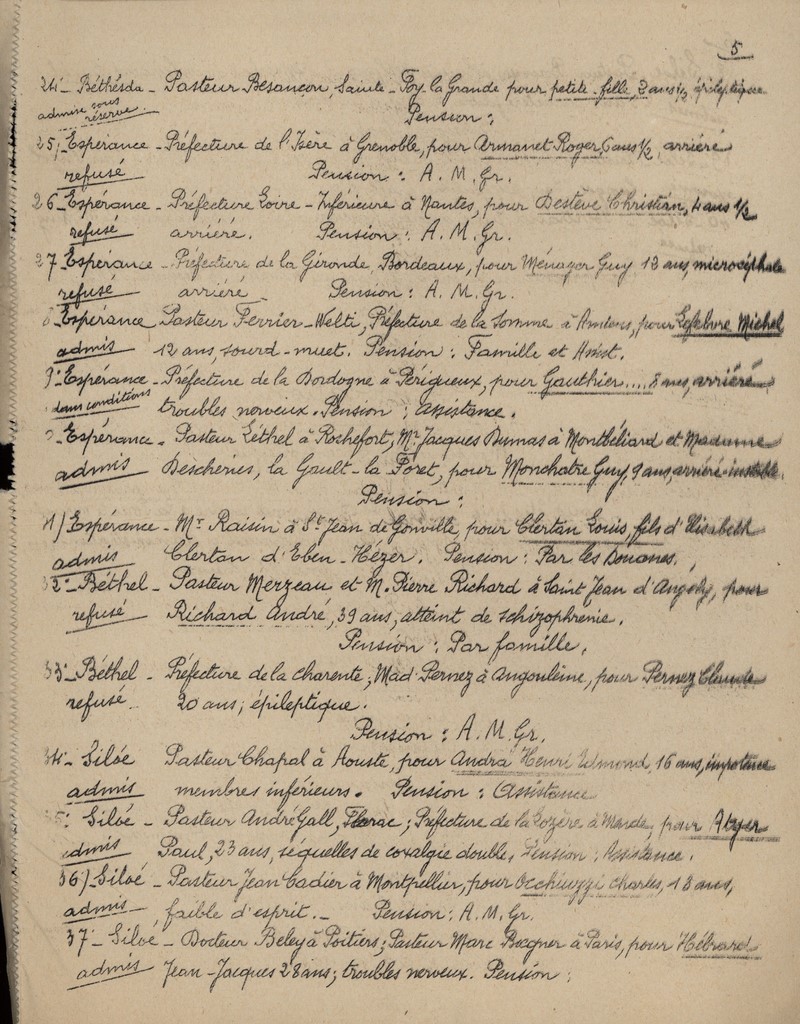 5
24- Béthesda - Pasteur Besançon, Sainte-Foy la Grande pour petite-fille, 3 ans ½ épileptique
admise sous réserve. Pension :
25/ Espérance - Préfecture de l'Isère à Grenoble, pour Armanet Roger, 6 ans ½, arriéré
refusé Pension : A. M. Gr.
26- Espérance - Préfecture Loire-Inférieure à Nantes, pour Destève Christian, 4 ans ½
refusé arriéré. Pension : A. M. Gr.
27- Espérance - Préfecture de la Gironde, Bordeaux, pour Ménager Guy 13 ans, microcéphale
refusé arriéré. Pension : A. M. Gr.
Espérance Pasteur Ferrier-Welti, Préfecture de la Somme à Amiens, pour Lefebvre Michel
admis 12 ans, sourd-muet. Pension : Famille et Assist.
9- Espérance - Préfecture de la Dordogne à Périgueux, pour Gauthier.... 8 ans, arriéré
dans conditions troubles nerveux. Pension : Assistance.
Espérance - Pasteur Léthel à Rochefort, Mr Jacques Dumas à Montbéliard et Madame
admis Descheries, la Gault-la Forêt, pour Monchatre Guy, 9 ans, arriéré instable
Pension :
1/ Espérance - Mr Raisin à St Jean de Gonville, pour Clertan Louis, fils d'Elisabeth
admis Clertan d'Eben-Hézer. Pension : Par les Douanes.
32- Béthel - Pasteur Merzeau et M. Pierre Richard à Saint Jean d'Angely, pour
refusé Richard André, 39 ans, atteint de schizophrenie.
Pension : Par famille.
33- Béthel - Préfecture de la Charente, Mad. Pernez à Angoulème, pour Pernez Claude
refusé 20 ans, épileptique.
Pension : A. M. Gr.
34- Siloé Pasteur Chapal à Aouste, pour André Henri Edmond, 16 ans, impotence
admis membres inférieurs. Pension : Assistance
Siloé - Pasteur André Gall, Florac ; Préfecture de la Lozère à Mende, pour
admis Paul, 23 ans, séquelles de coxalgie double. Pension : Assistance.
36/ Siloé - Pasteur Jean Cadier à Montpellier, pour Occhiuzzi Charles, 18 ans,
admis faible d'esprit. - Pension : A. M. Gr.
37- Siloé - Docteur Beley à Poitiers ; Pasteur Marc Boegner à Paris, pour Hébrard
admis Jean-Jacques 28 ans ; troubles nerveux. Pension :